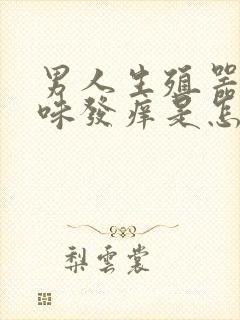 男人生殖器
味發痒是怎
梨雲裳